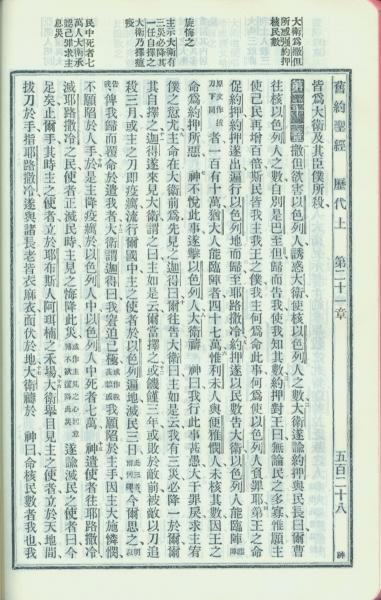 舊約聖經　歷代上　第二十一章　五百二十八
大衛為撒但
所惑強約押
核民數
旋悔之
主示大衛有
三災必降其
一任自擇之
大衛乃擇瘟
疫
民中死者七
萬人大衛承
認己罪求主
息災
皆為大衛及其臣僕所殺
第二十一章 撒但欲害以色列人誘惑大衛使核以色列人之數大衛遂諭約押與民長曰爾曹
往核以色列人之數自別是巴至但歸而告我使我知其數約押對王曰無論民之多寡惟願主
使己民再增百倍斯民皆我主我王之僕我主何為命此事何為使以色列人負罪耶第王之命
促約押約押遂出遍行以色列地而歸至耶路撒冷約押遂以民數告大衛以色列人能臨陣臨陣
原文作拔刀下同者一百有十萬猶大人能臨陣者四十七萬惟利未人與便雅憫人未核其數因王之
命為約押所惡 神不悅此事遂擊以色列人大衛禱 神曰我行此事甚愚大干罪戾求主宥
僕之愆尤主命在大衛前為先見之迦得曰爾往告大衛曰主如是云我有三災必降一於爾爾
其自擇之迦得遂來見大衛謂之曰主如是云爾當擇之或饑饉三年或敗於敵前被敵以刀追
殺三月或主之刀即疫癘流行國中主之使者於以色列遍地滅民三日今爾思之
告我俾我歸而覆命於遣我者大衛謂迦得曰我窘迫已極我願陷於主手因主大施憐憫
不願陷於人手於是主降疫癘於以色列人中以色列人中死者七萬 神遣使者往耶路撒冷
滅耶路撒冷之民使者正滅民時主見之悔降此災遂諭滅民之使者曰今
足矣止爾手其時主之使者立於耶布斯人阿珥楠之禾場大衛舉目見主之使者立於天地間
拔刀於手指耶路撒冷遂與諸長老皆衣麻衣而伏於地大衛禱於 神曰命核民數者我也我